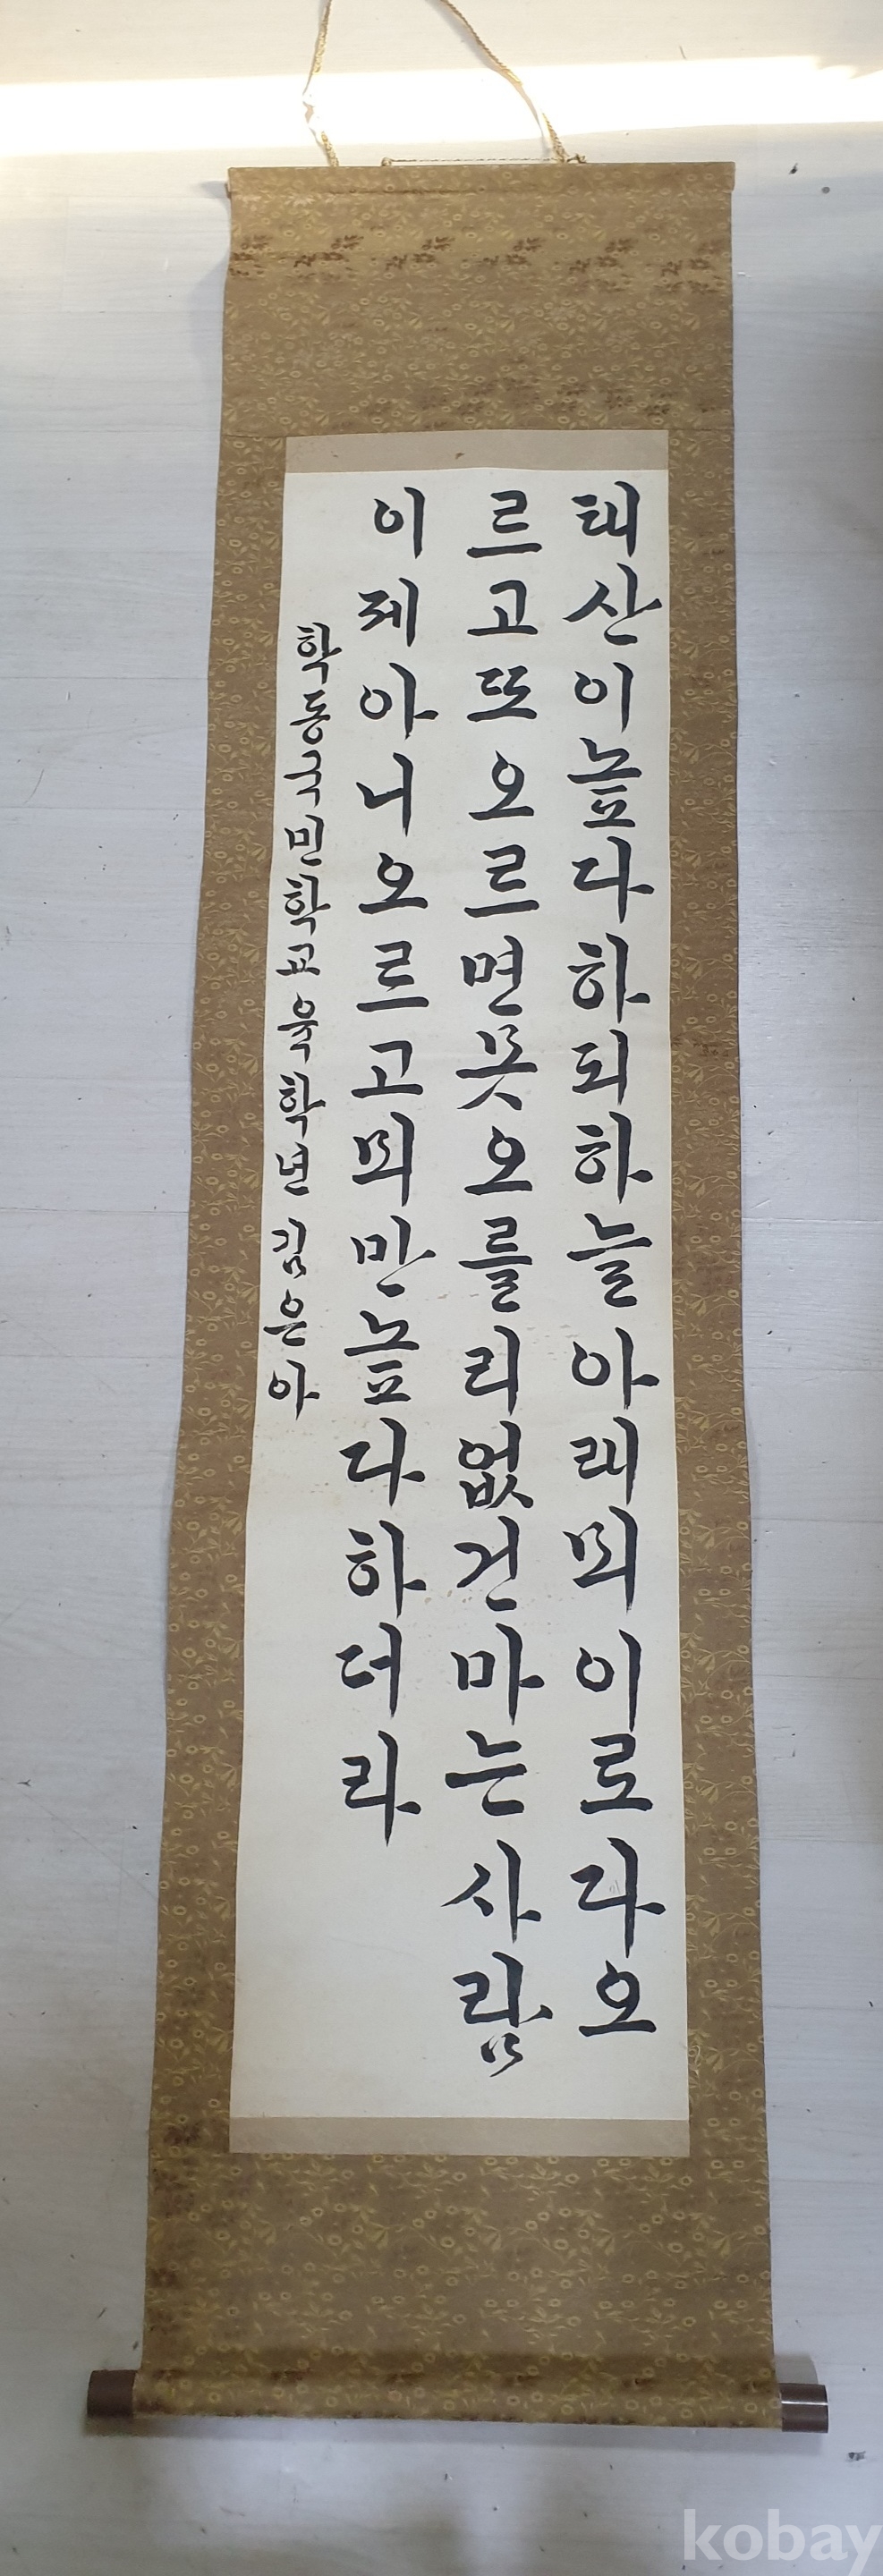 태산이높다하되하늘아래뫼이로다오
르고또오르면못오를리없건마는사람
이제아니오르고뫼만높다하더라
학동국민학교육학년 김은아
kobay